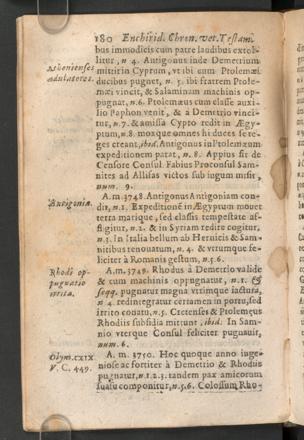 180 Enchirid. Chron. vet. Testam.
bus immodicis cum patre laudibus extol-
litur, n 4. Antigonus inde Demetrium
Atheniensis
adulatores.
mittit in Cyprum, vt ibi cum Ptolemæi
ducibus pugnet, n. 5. ibi fratrem Ptole-
mæi vincit, & Salaminam machinis op-
pugnat, n.6. Ptolemæus cum classe auxi-
lio Paphon venit, & à Demetrio vinci-
tur, n.7. & amissa Cypro redit in Ægy-
ptum, n.8. moxque omnes hi duces se re-
ges creant, ibid. Antigonus in Ptolemæum
expeditionem parat, n. 8. Appius fit de
Censore Consul Fabius Proconsul Sam-
nites ad Allifas victos sub iugum misit,
num. 9.
Antigonia.
A.m.3748. Antigonus Antigoniam con-
dit, n.1. Expeditionē in Ægyptum mouet
terra marique, sed classis tempestate af-
fligitur, n.2. & in Syriam redire cogitur,
n.3. In Italia bellum ab Hernicis & Sam-
nitibus renouatum, n.4. & vtrumque fe-
liciter à Romanis gestum, n.5.6.
Rhodi op-
pugnatio
irrita.
A.m.3749. Rhodus à Demetrio valide
& cum machinis oppugnatur, n.1. &
seqq. pugnatur magna vtrimque iactura,
n.4. redintegratur certamen in portu, sed
irrito conatu, n.5. Cretenses & Ptolemæus
Rhodiis subsidia mittunt, ibid. In Sam-
nio vterque Consul feliciter pugnauit,
num.6.
Olym.CXIX
V. C. 449.
A. m. 3750. Hoc quoque anno inge-
niose ac fortiter à Demetrio & Rhodiis
pugnatur, n.1.2.3. tandem pax amicorum
suasu componitur, n.5.6. Colossum Rho-